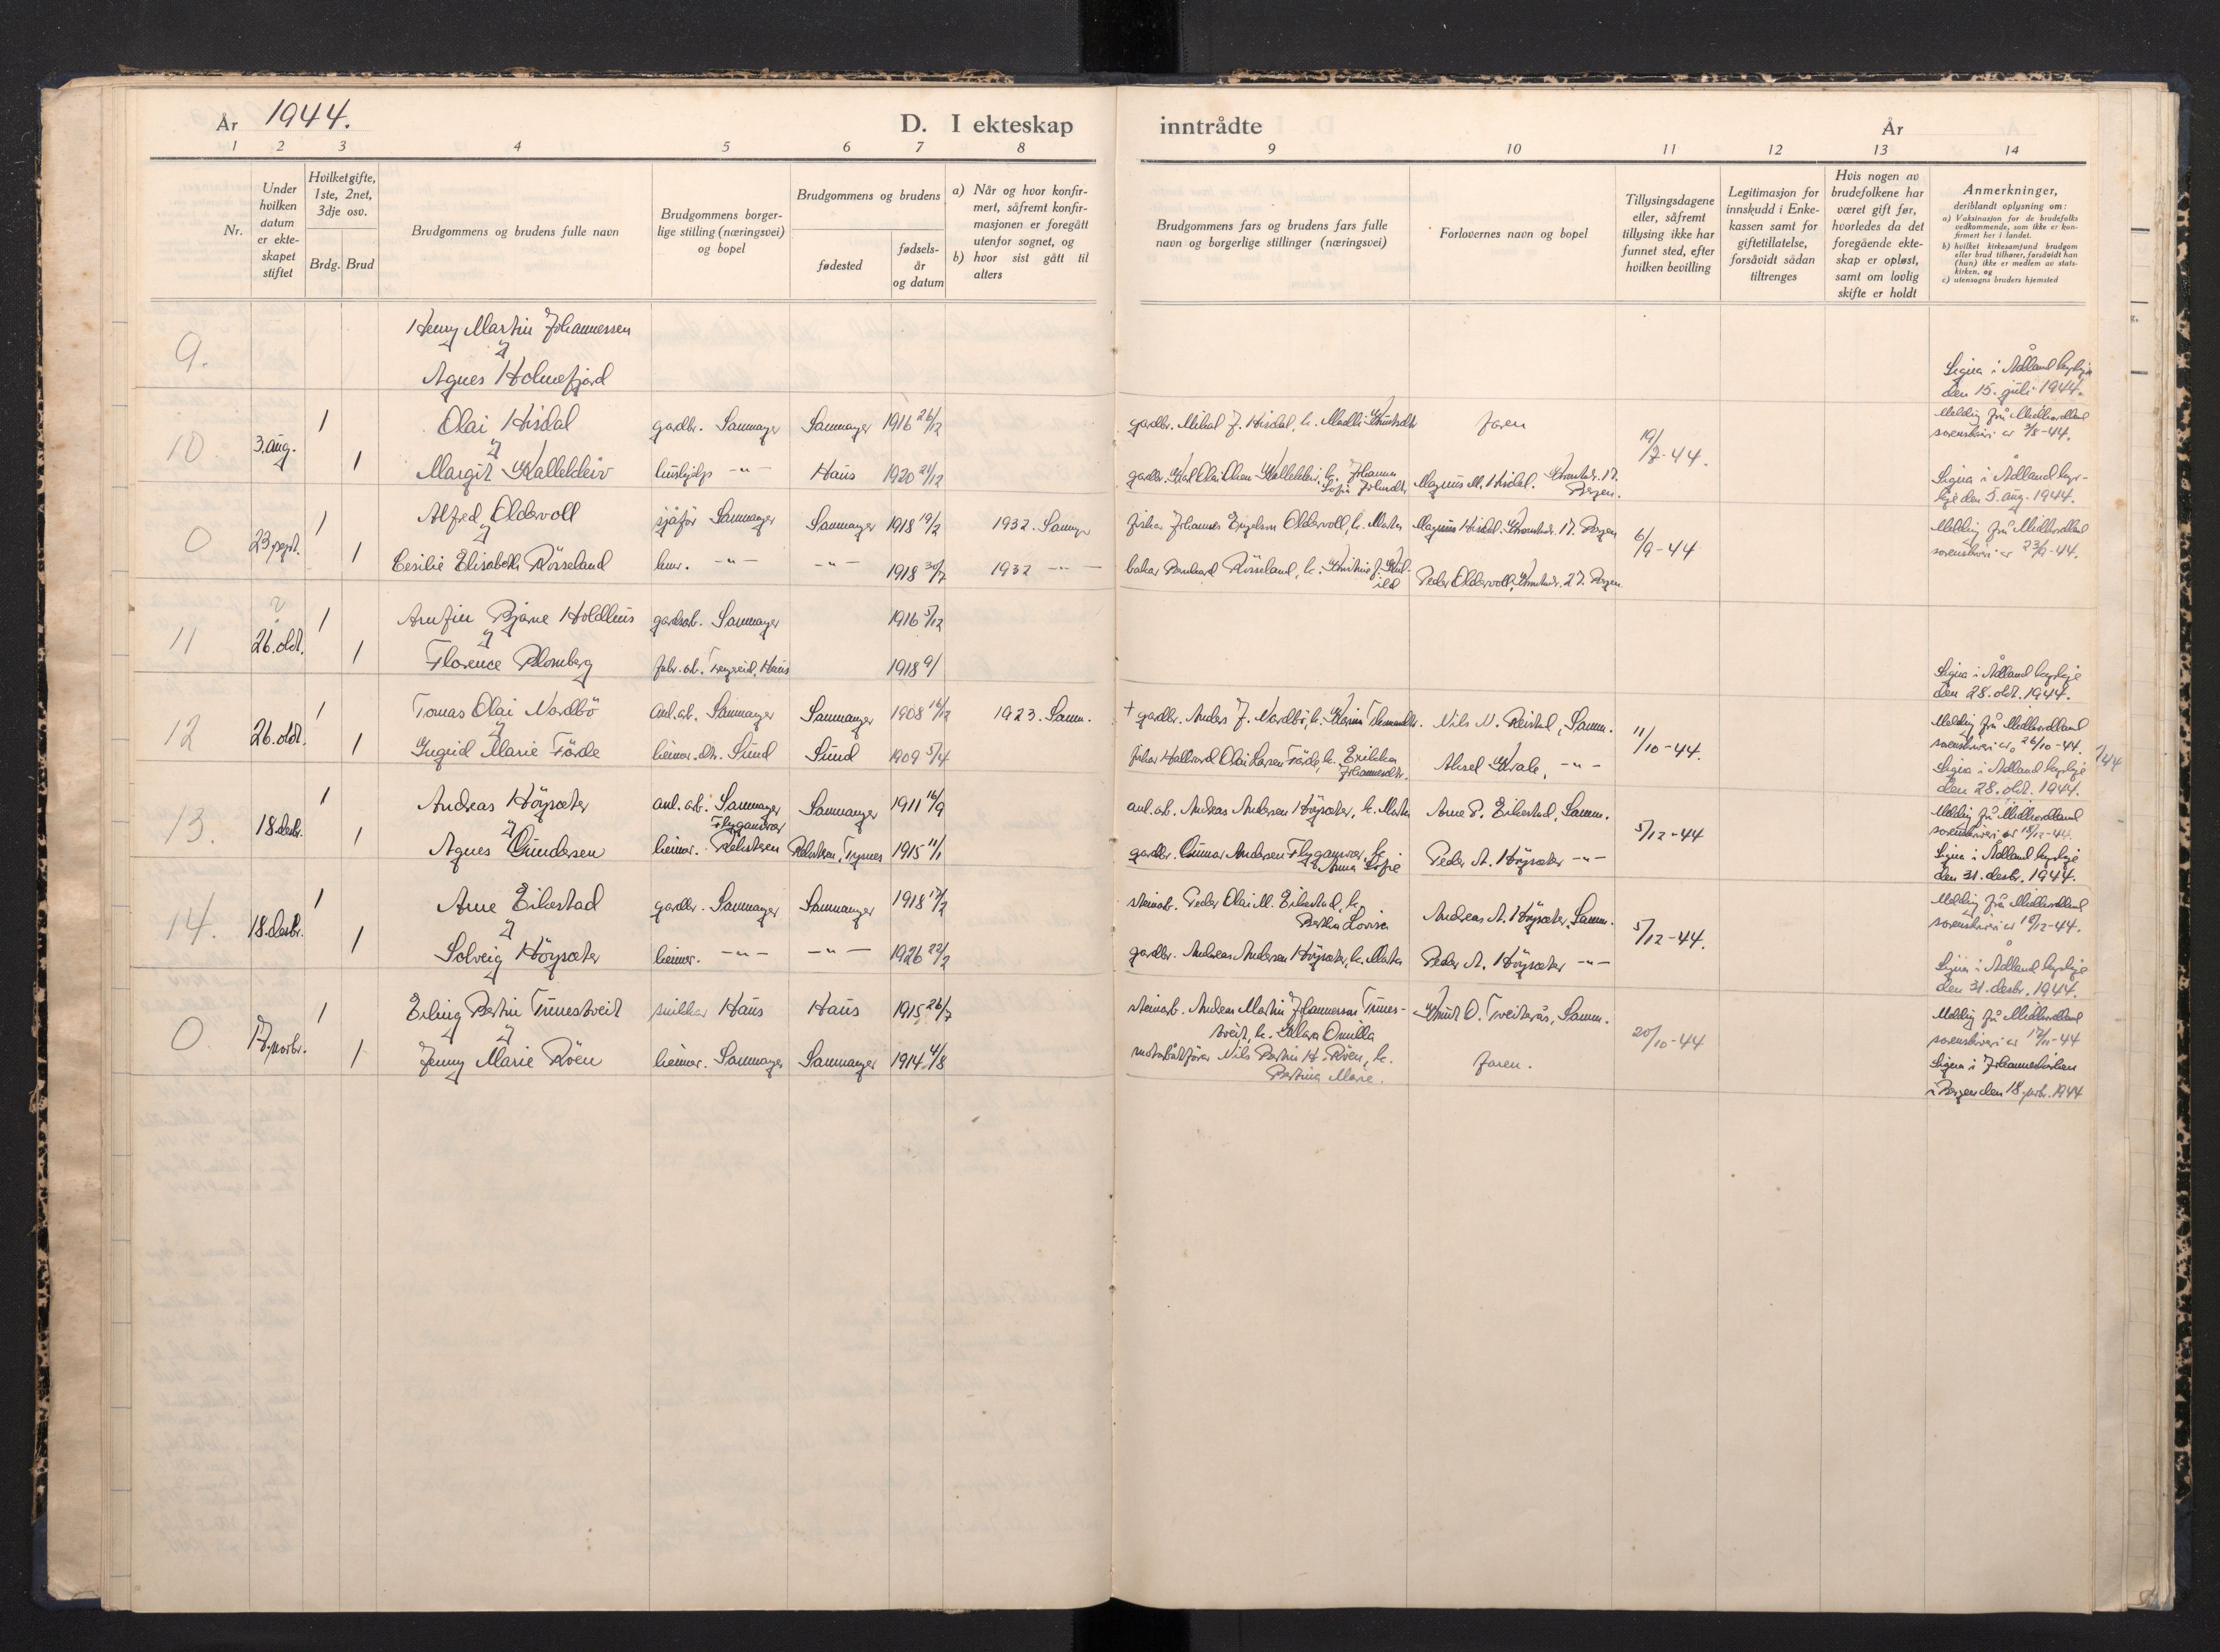 År 1944.
D. I ekteskap inntrådte
År
1 2 3 4 5 6 7 8 9 10 11 12 13 14
Nr.
Under hvilken datum er ekteskapet stiftet
Hvilket gifte, 1ste, 2net, 3dje osv.
Brdg. Brud
Brudgommens og brudens fulle navn
Brudgommens borgerlige stilling (næringsvei) og bopel
Brudgommens og brudens
fødested
fødselsår og datum
a) Når og hvor konfirmert, såfremt konfirmasjonen er foregått utenfor sognet, og
b) hvor sist gått til alters
Brudgommens fars og brudens fars fulle navn og borgerlige stillinger (næringsvei)
Forlovernes navn og bopel
Tillysingsdagene eller, såfremt tillysing ikke har funnet sted, efter hvilken bevilling
Legitimasjon for innskudd i Enkekassen samt for giftetillatelse, forsåvidt sådan tiltrenges
Hvis nogen av brudefolkene har været gift før, hvorledes da det foregående ekteskap er opløst, samt om lovlig skifte er holdt
Anmerkninger, deriblandt oplysning om:
a) Vaksinasjon for de brudefolks vedkommende, som ikke er konfirmert her i landet.
b) hvilket kirkesamfund brudgom eller brud tilhører, forsåvidt han (hun) ikke er medlem av statskirken, og
c) utensogns bruders hjemsted
9. Henny Martin Johannessen
og
Agnes Holmefjord
Signa i Ådland kyrkje
den 15. juli 1944.
10 3. aug. 1 Olai Hisdal gardbr. Samnanger Samnanger 1916 26/12 gardbr. Mikal J. Hisdal, k. Madli Knutsdtr faren 19/7-44. Melding frå Midhordland
sorenskriveri av 3/8-44.
og
1 Margit Kallekleiv hushjelp -"- Haus 1920 21/12 gardbr. Karl Olai Olsen Kallekleiv, k. Johanna
Sofia Magnus M. Hisdal. 17.
Bergen. Signa i Ådland kyrkje
den 5. aug. 1944.
0 23. sept. 1 Alfred Oldervoll sjåför Samnanger Samnanger 1918 19/2 1932. Samn. fiskar Johannes Engelsen Oldervoll, k. Marta Magnus Hisdal. 17. Bergen 6/9-44 Melding frå Midhordland
sorenskriveri av 23/9-44.
og
1 Cesilie Elisabeth Rösseland hmr. -"- -"- 1918 30/7 1932 -"- bakar Bernhard Rösseland, k. Kristine J.
Peder Oldervoll, 27. Bergen
11 26. okt. 1 Arnfin Bjarne Holdhus gardsarb. Samnanger 1916 5/12
og
1 Florence Blomberg fabr.arb. Trengereid, Haus 1918 9/
Signa i Ådland kyrkje
den 28. okt. 1944.
12 26. okt. 1 Tomas Olai Nordbö anl.arb. Samnanger Samnanger 1908 16/12 1923. Samn. + gardbr. Anders J. Nordbö, k. Karina Nils N. Reistad, Samn. 11/10-44. Melding frå Midhordland
sorenskriveri av 26/10-44.
og
1 Ingrid Marie Förde heimev. dtr. Sund Sund 1909 5/4 fiskar Hallvard Olai Larsen Förde, k. Erikka
Johannesdtr. Aksel Kvale, -"- Signa i Ådland kyrkje
den 28. okt. 1944.
13. 18. desbr. 1 Andreas Höysæter anl.arb. Samnanger Samnanger 1911 16/9 anl.arb. Andreas Andersen Höysæter, k. Marta Arne P. Eikestad, Samn. 5/12-44 Melding frå Midhordland
sorenskriveri av 18/12-44.
og
1 Agnes Gundersen heimev. Flygansvær
Reksteren Reksteren, Tysnes 1915 11/1 gardbr. Gunnar Andersen Flygansvær, k.
Anna Sofie Peder A. Höysæter -"- Signa i Ådland kyrkje
den 31. desbr. 1944.
14. 18. desbr. 1 Arne Eikestad gardbr. Samnanger Samnanger 1918 17/2 steinarb. Peder Olai M. Eikestad, k.
Bertha Lovisa Andreas A. Höysæter, Samn. 5/12-44. Melding frå Midhordland
sorenskriveri av 18/12-44.
og
1 Solveig Höysæter heimev. -"- -"- 1926 22/2 gardbr. Andreas Andersen Höysæter, k. Marta Peder A. Höysæter -"- Signa i Ådland kyrkje
den 31. desbr. 1944.
0. 17. novbr. 1 Erling Bertin Tunestveit snikkar Haus Haus 1915 26/7 steinarb. Andreas Martin Johannessen Tunestveit, k. Klara Omilla Knut O. Tveiterås, Samn. 20/10-44 Melding frå Midhordland
sorenskriveri av 17/11-44
og
1 Jenny Marie Röen heimev. Samnanger Samnanger 1914 4/8 motorbåtförar Nils Bertin H. Röen, k.
Bertina Marie. faren. Signa i Johanneskirken
i Bergen den 18. novbr. 1944